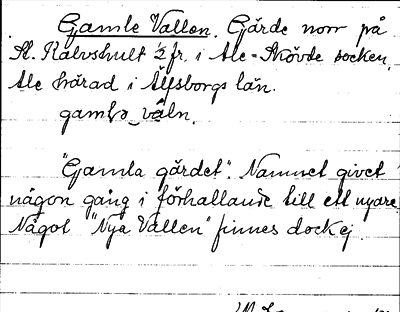 Gamle Vallen. Gärde norr på
St. Kalvshult ½ fr. i Ale-Skövde socken,
Ale härad i Älfsborgs län.
gamlə våln.
"Gamla gärdet". Namnet givet
någon gång i förhållande till ett nyare.
Något "Nya Vallen" finnes dock ej.